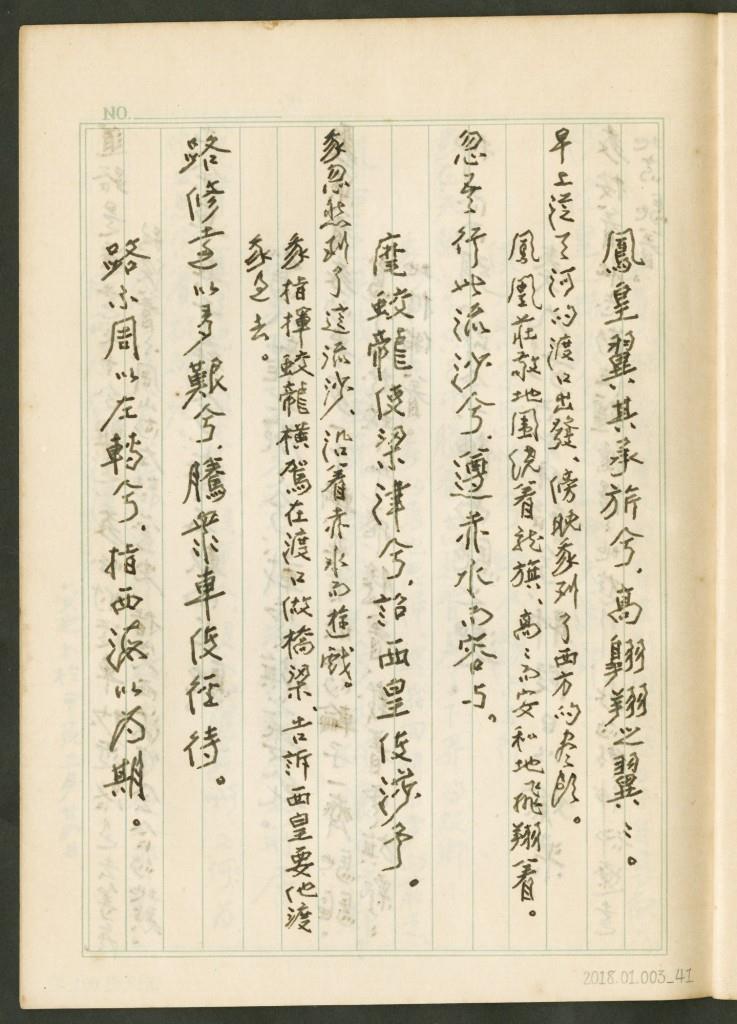 NO.
鳳皇翼其承旂兮、高翱翔之翼〻。
早上從天河的渡口出發、傍晚我到了西方的盡頭。
鳳凰莊敬地圍繞着龍旗、高〻而安和地飛翔着。
忽吾行此流沙兮、遵赤水而容与。
麾蛟龍使梁津兮、詔西皇使涉予。
我忽然到了這流沙、沿着赤水而遊戲。
我指揮蛟龍橫駕在渡口做橋梁、告訴西皇要他渡
我過去。
路修遠以多艱兮、騰眾車使徑待。
路不周以左轉兮、指西海以为期。
2018.01.003_41